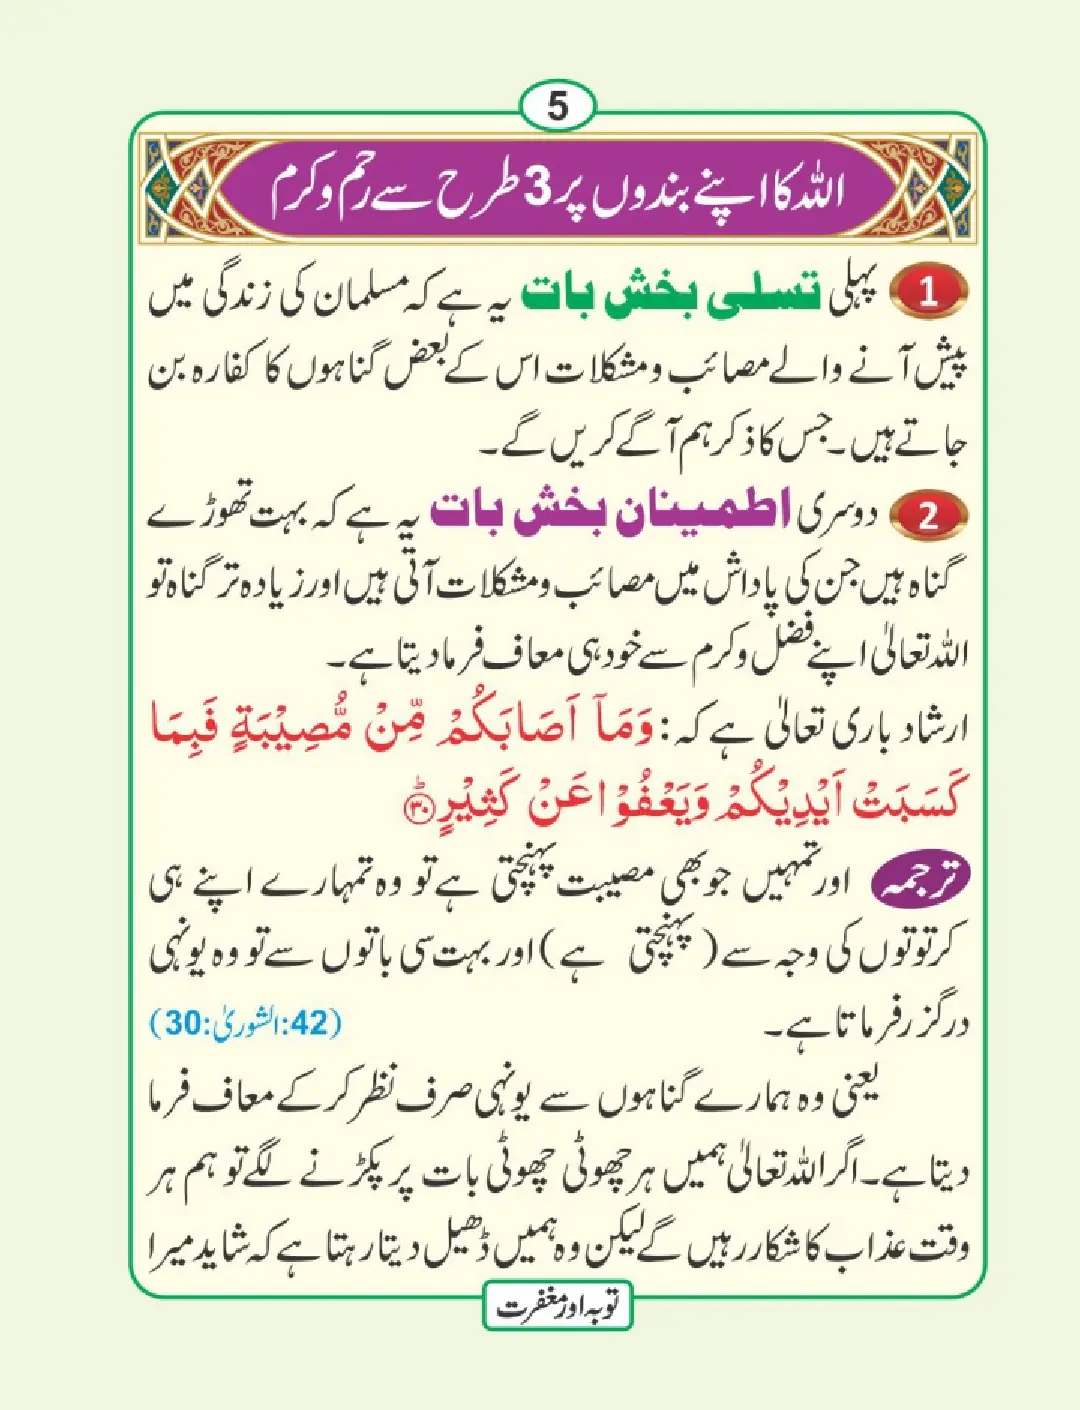 5
اللہ کا اپنے بندوں پر 3 طرح سے رحم و کرم
1 پہلی تسلی بخش بات یہ ہے کہ مسلمان کی زندگی میں
پیش آنے والے مصائب و مشکلات اس کے بعض گناہوں کا کفارہ بن
جاتے ہیں۔ جس کا ذکر ہم آگے کریں گے۔
2 دوسری اطمینان بخش بات یہ ہے کہ بہت تھوڑے
گناہ ہیں جن کی پاداش میں مصائب و مشکلات آتی ہیں اور زیادہ تر گناہ تو
اللہ تعالیٰ اپنے فضل و کرم سے خود ہی معاف فرما دیتا ہے۔
ارشاد باری تعالیٰ ہے کہ: وَمَآ اَصَابَكُمْ مِّنْ مُّصِيْبَةٍ فَبِمَا
كَسَبَتْ اَيْدِيْكُمْ وَيَعْفُوْا عَنْ كَثِيْرٍ ؕ۳۰
ترجمہ اور تمہیں جو بھی مصیبت پہنچتی ہے تو وہ تمہارے اپنے ہی
کرتوتوں کی وجہ سے (پہنچتی ہے) اور بہت سی باتوں سے تو وہ یونہی
درگزر فرماتا ہے۔ (42:الشوریٰ:30)
یعنی وہ ہمارے گناہوں سے یونہی صرف نظر کر کے معاف فرما
دیتا ہے۔ اگر اللہ تعالیٰ ہمیں ہر چھوٹی چھوٹی بات پر پکڑنے لگے تو ہم ہر
وقت عذاب کا شکار رہیں گے لیکن وہ ہمیں ڈھیل دیتا رہتا ہے کہ شاید میرا
توبہ اور مغفرت